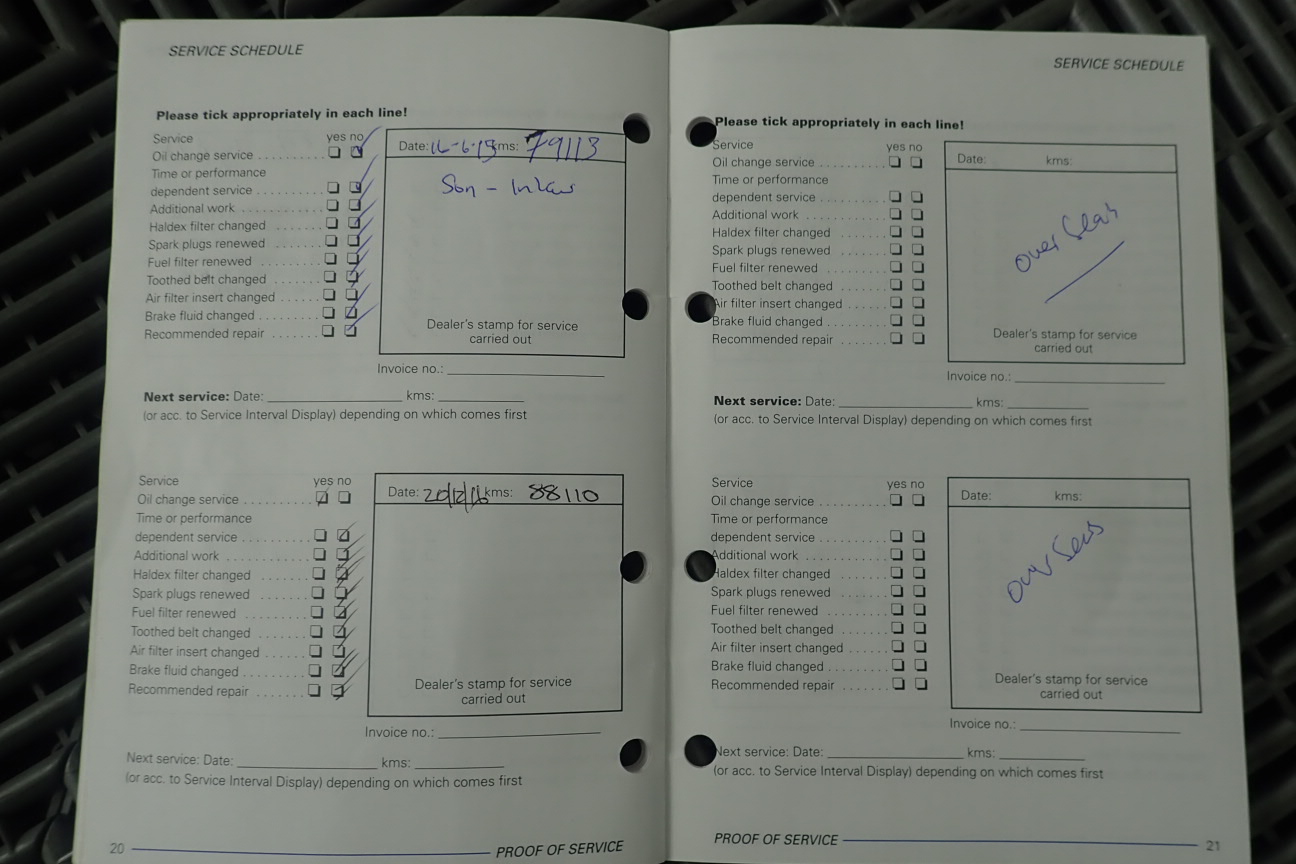 SERVICE SCHEDULE
Please tick appropriately in each line!
Service yes no
Oil change service
Time or performance
dependent service
Additional work
Haldex filter changed
Spark plugs renewed
Fuel filter renewed
Toothed belt changed
Air filter insert changed
Brake fluid changed
Recommended repair
Date: kms: 79113
Son - Inlaw
Dealer's stamp for service
carried out
Invoice no.:
Next service: Date: kms:
(or acc. to Service Interval Display) depending on which comes first
Service yes no
Oil change service
Time or performance
dependent service
Additional work
Haldex filter changed
Spark plugs renewed
Fuel filter renewed
Toothed belt changed
Air filter insert changed
Brake fluid changed
Recommended repair
Date: 20/12/16 kms: 88110
Dealer's stamp for service
carried out
Invoice no.:
Next service: Date: kms:
(or acc. to Service Interval Display) depending on which comes first
20 PROOF OF SERVICE
SERVICE SCHEDULE
Please tick appropriately in each line!
Service yes no
Oil change service
Time or performance
dependent service
Additional work
Haldex filter changed
Spark plugs renewed
Fuel filter renewed
Toothed belt changed
Air filter insert changed
Brake fluid changed
Recommended repair
Date: kms:
over Seas
Dealer's stamp for service
carried out
Invoice no.:
Next service: Date: kms:
(or acc. to Service Interval Display) depending on which comes first
Service yes no
Oil change service
Time or performance
dependent service
Additional work
Haldex filter changed
Spark plugs renewed
Fuel filter renewed
Toothed belt changed
Air filter insert changed
Brake fluid changed
Recommended repair
Date: kms:
over Seas
Dealer's stamp for service
carried out
Invoice no.:
Next service: Date: kms:
(or acc. to Service Interval Display) depending on which comes first
PROOF OF SERVICE 21